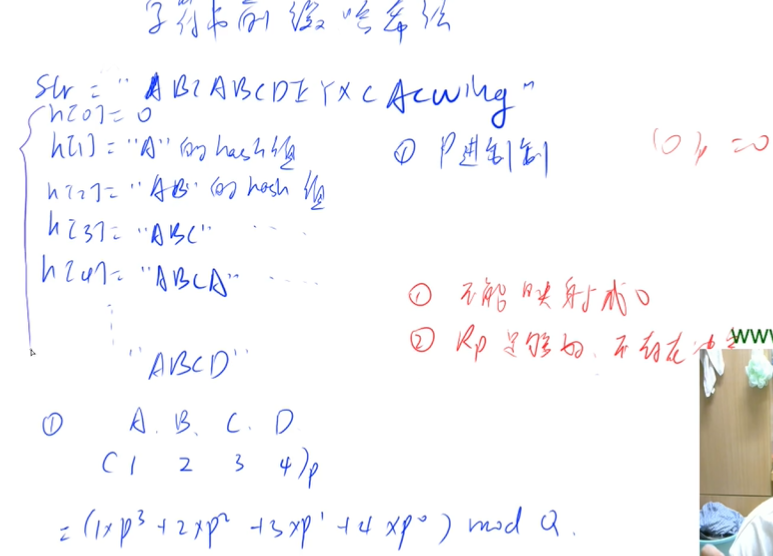 字符串前缀哈希法
str = "ABCABCDEYXCAcwing"
h[0] = 0
h[1] = "A" 的hash值
h[2] = "AB" 的hash值
h[3] = "ABC" ......
h[4] = "ABCA" ......
"ABCD"
① P进制
(0)p = 0
① 不能映射成0
② Rp足够好, 不存在冲突
www
① A. B. C. D
(1 2 3 4)p
= (1×p³ + 2×p² + 3×p¹ + 4×p⁰) mod Q.